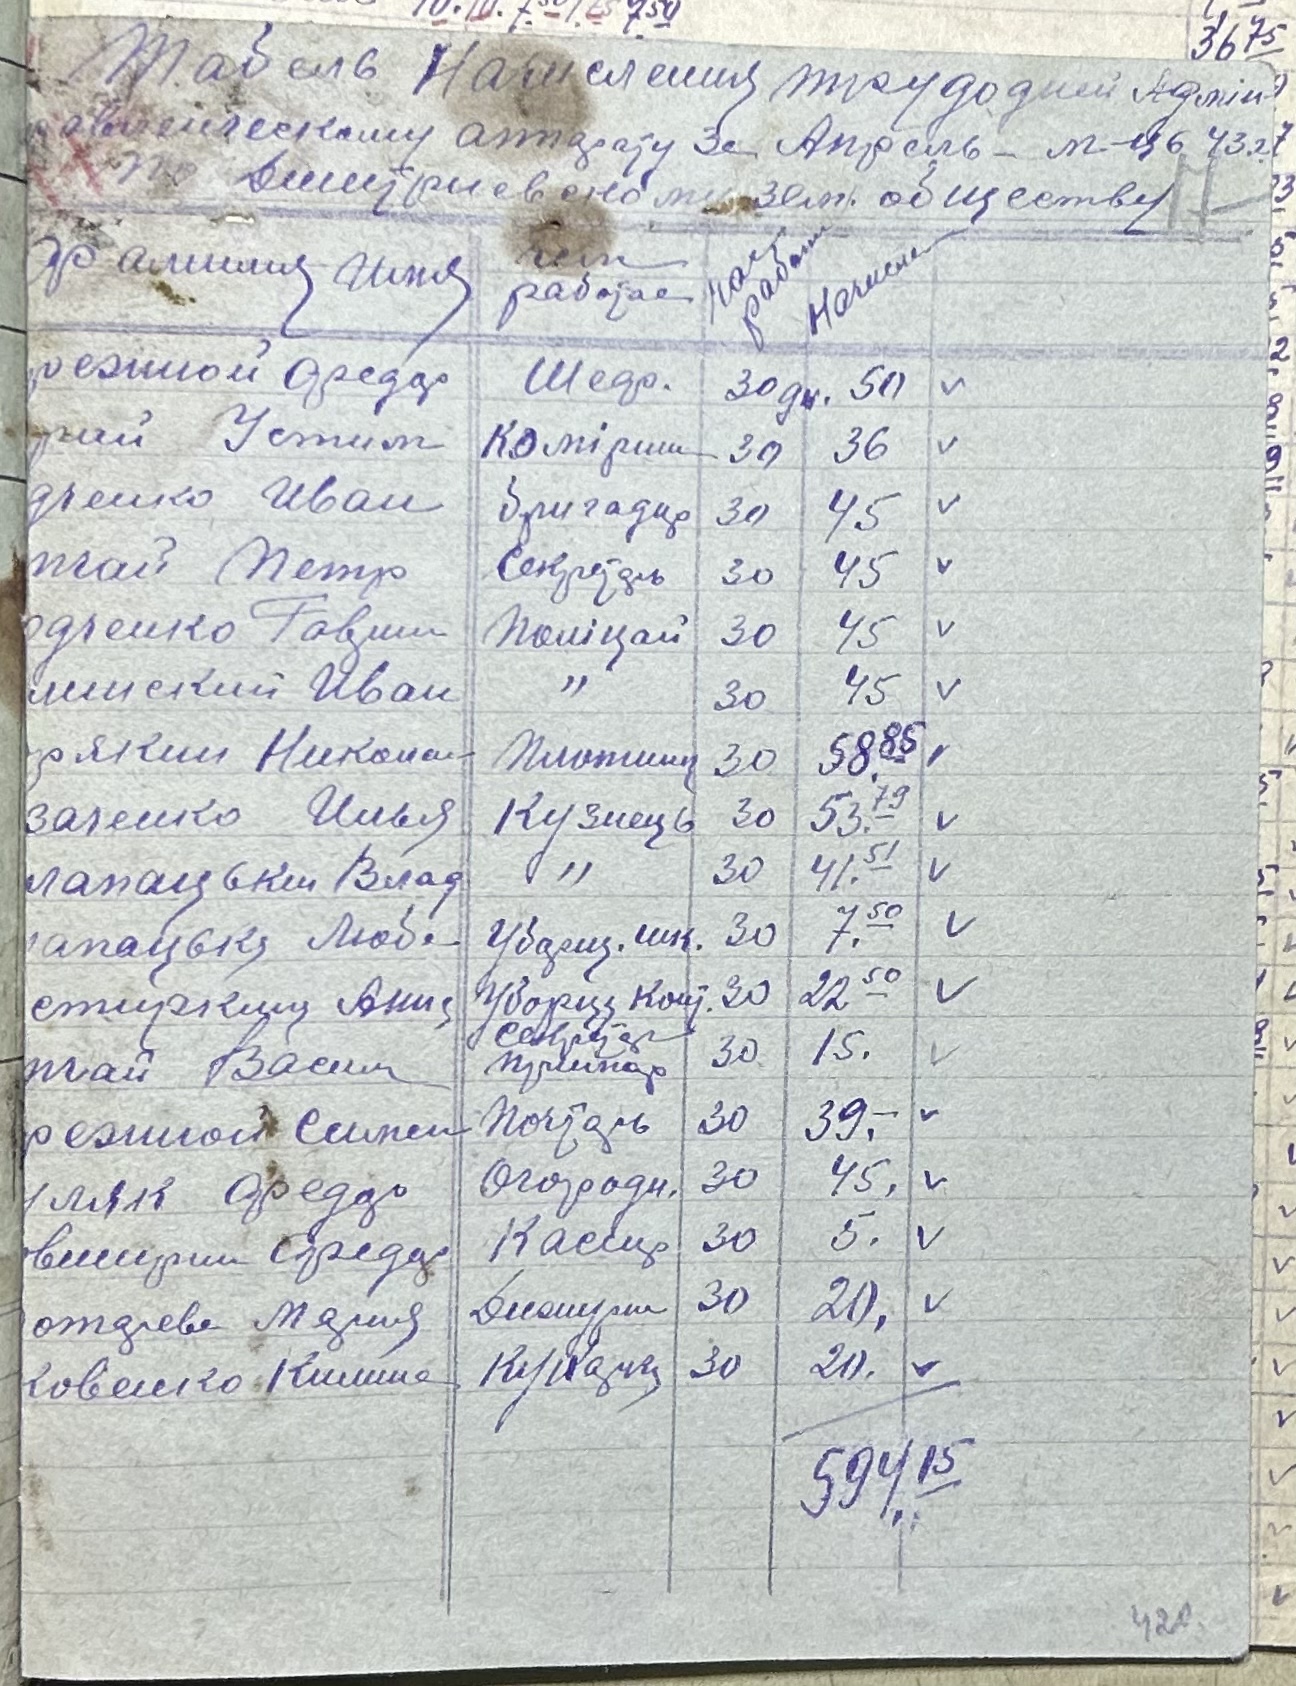 10. 10. 7.50 1.25 7.50
36 75
Табель Начисления трудодней Адмін
управленческому аппарату За Апрель – м-ць 43 г.
по Дмитриевскому зем. обществу
Фамилия Имя чем работае час работи Начислен
режной Федор Шеф. 30 дн. 50 v
рнай Устим Комірник 30 36 v
дченко Иван бригадир 30 45 v
пчай Петр Секретарь 30 45 v
одченко Гаврил Поліцай 30 45 v
линский Иван " 30 45 v
рякин Николай Плотник 30 58.85 v
заченко Илья Кузнець 30 53.79 v
лапацький Влад " 30 41.51 v
лапацька Люба Уборщ. шк. 30 7.50 v
Анна Уборщ конт. 30 22 50 v
пчай Васил Секретар 30 15. v
режной Симен Почтарь 30 39,– v
уляк Федор Огородн. 30 45, v
Федор Касир 30 5. v
Мария Дежурна 30 20, v
ковенко Килина Кухарка 30 20. v
594,15
420.